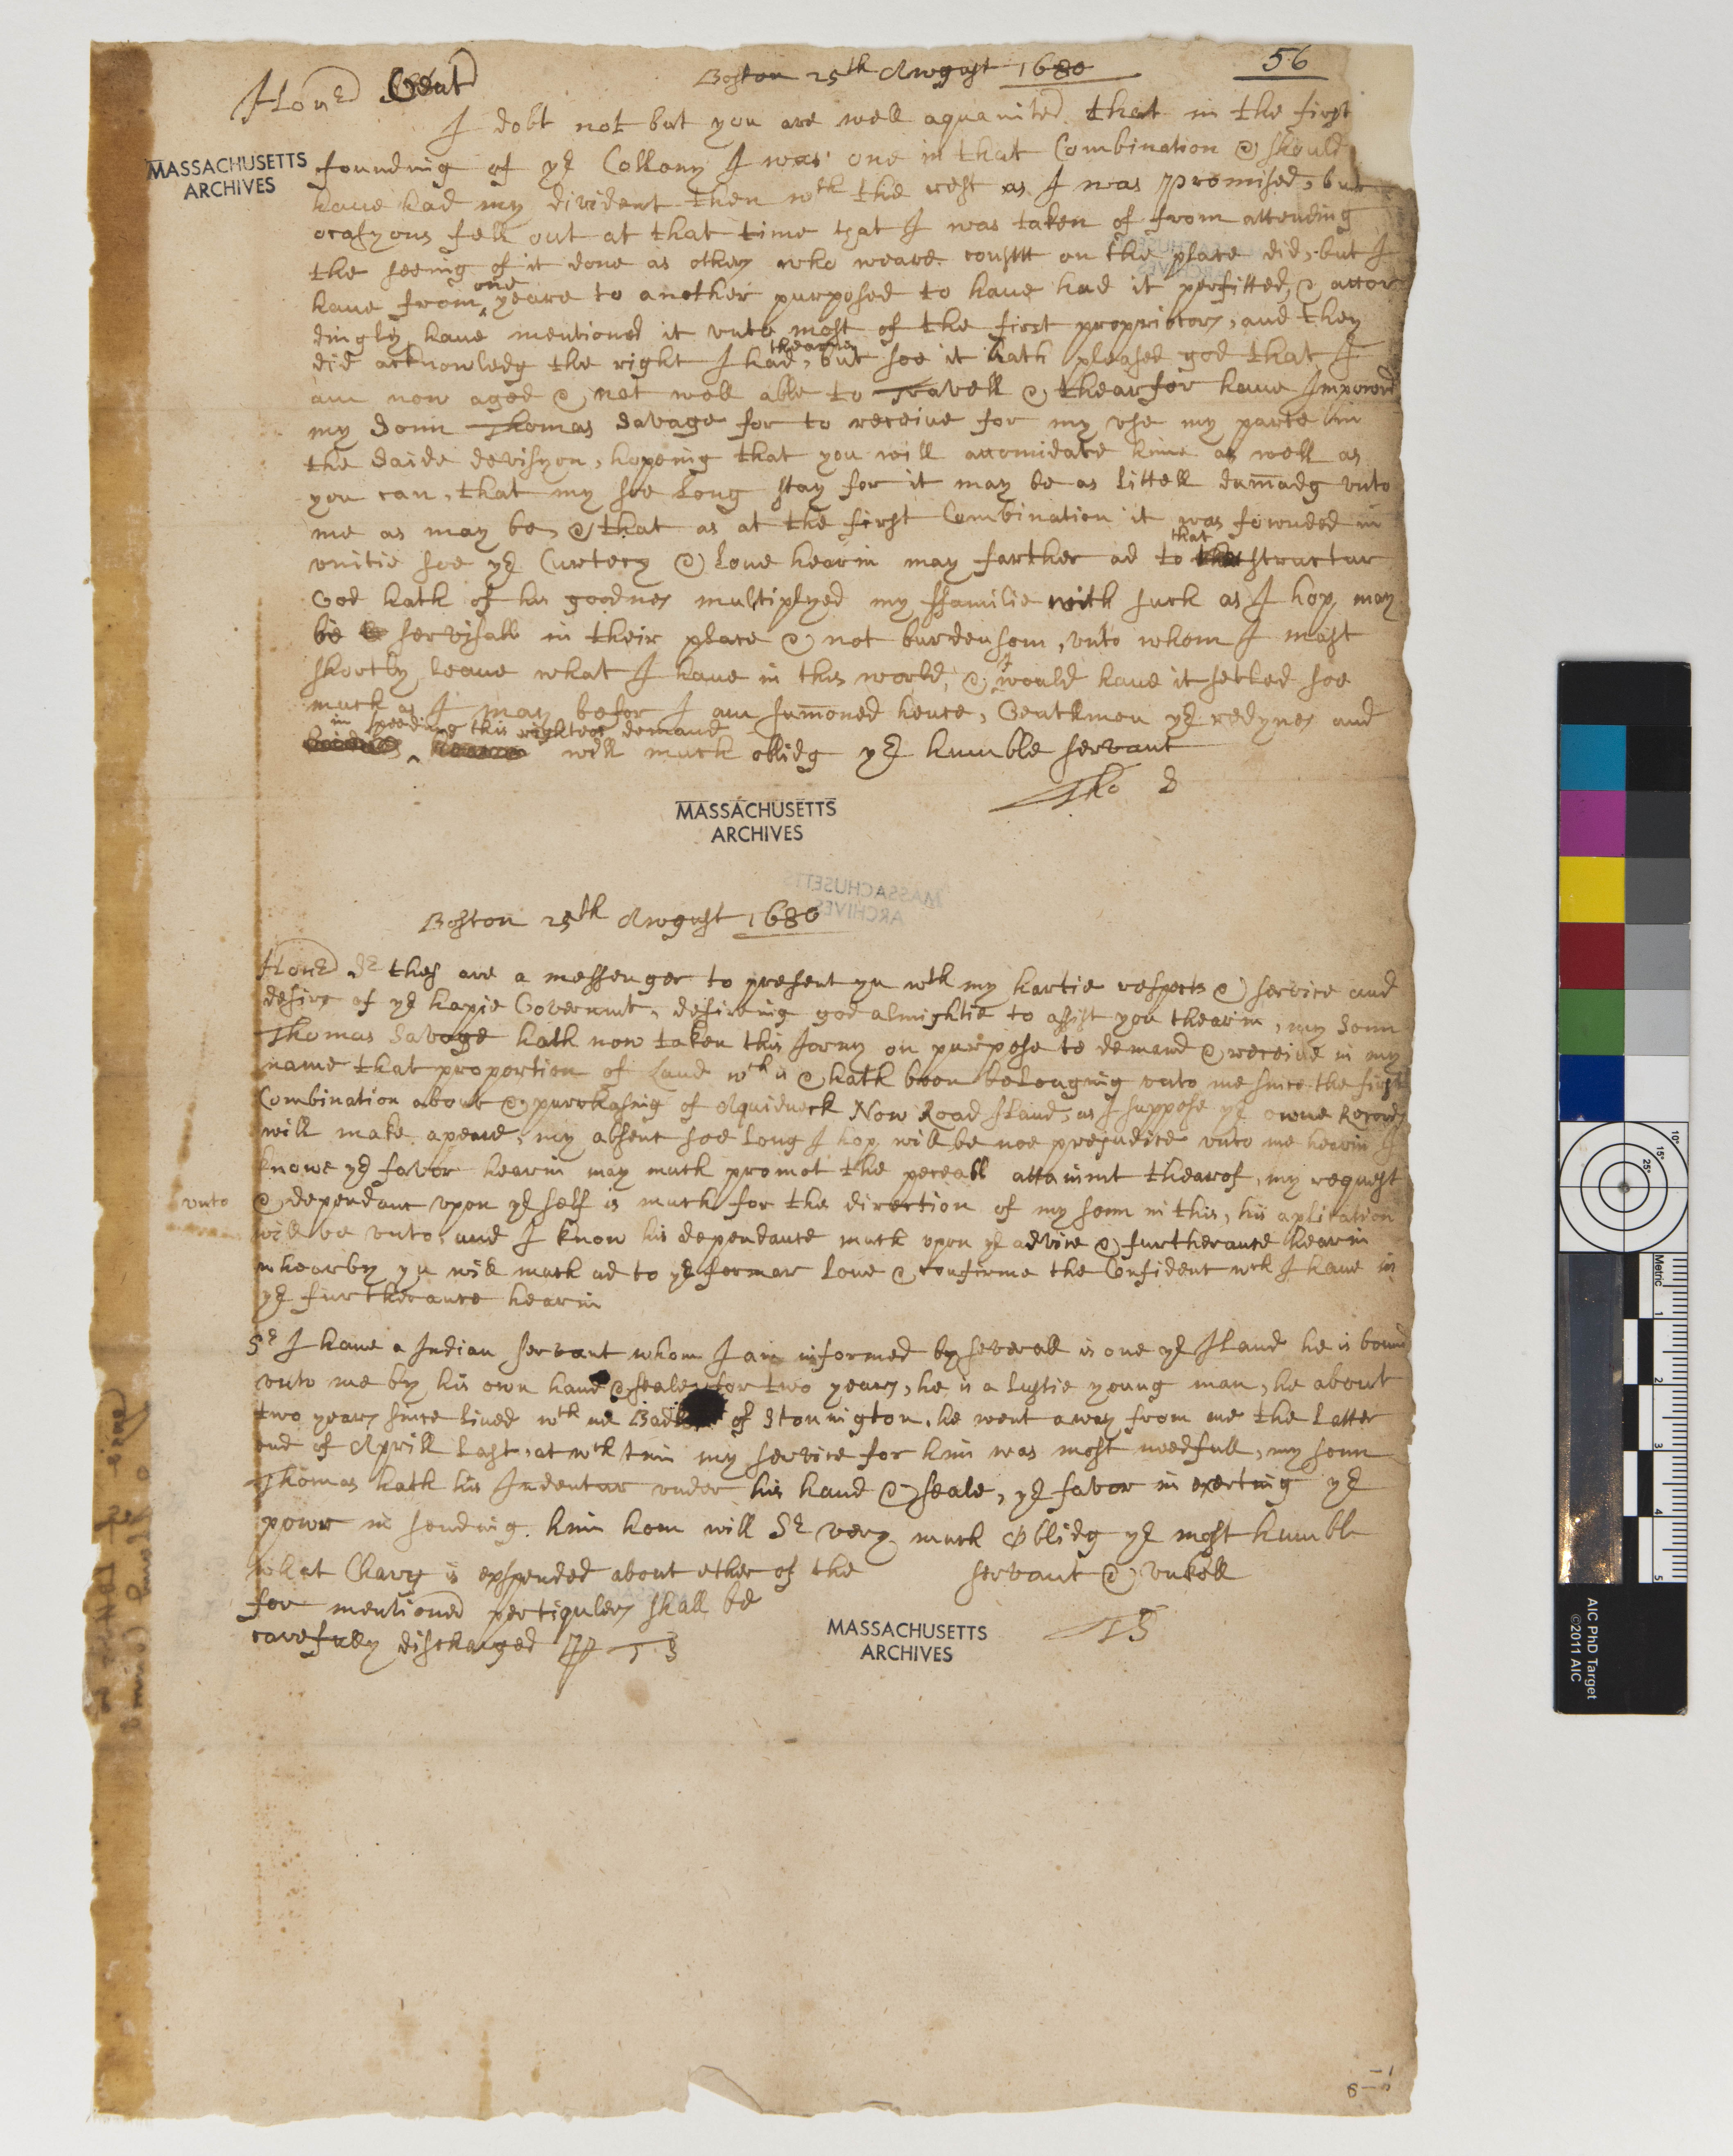 56
Boston 25th August 1680
Honrd Gent
I dobt not but you are well aquainted that in the first
founding of yr Collony I was one in that Combination & should
MASSACHUSETTS
ARCHIVES
haue had my divident then wth the rest as I was promised, but
ocasyons fell out at that time that I was taken of from attending
the seeing of it done as others who weare on the place did, but I
haue from one yeare to another purposed to haue had it perfitted, & accor
dingly haue mentioned it vnto most of the first propriators, and they
did acknowledg the right I had thearin, but soe it hath pleased god that I
am now aged & not well able to Travell & thearfor haue Impowrd
my Sonn Thomas Savage for to receive for my vse my parte in
the Saide devisyon, hopeing that you will accomidate hime as well as
you can, that my soe long stay for it may be as littell damadg vnto
me as may be, & that as at the first Combination it was fownded in
vnitie soe yr Curtecy & Loue hearin may farther ad to that structur
God hath of his goodnes multiplyed my ffamilie with such as I hop may
be servisall in their place & not burdensom, vnto whom I must
shortly leaue what I haue in this world, & I would haue it setled soe
much as I may befor I am sumoned hence, Gentlemen yr redynes and
in speeding this righteos demand
will much oblidg yr humble servant
Tho S
MASSACHUSETTS
ARCHIVES
MASSACHUSETTS
ARCHIVES
Boston 25th August 1680
Honrd Sr thes are a messenger to present yu wth my hartie respects & service and
desire of yr hapie Governmt, desireing god almightie to assist you thearin, my Sonn
Thomas Savage hath now taken this Jorny on purpose to demand & receive in my
name that proportion of Land wch is & hath been belonging vnto me since the first
Combination about & purchasing of Aquidneck Now Road Iland, as I suppose yr owne Records
will make apeare, my absent soe long I hop will be noe prejudice vnto me hearin I
knowe yr favor hearin may much promot the peceall attainmt thearof, my request
& dependanc vpon yr self is much for the direction of my sonn in this, his aplication
vnto
will be vnto, and I know his dependance much vpon yr advice & furtherance hearin
whearby yu will much ad to yr formar Loue & confirme the Confident wch I haue in
yr furtherance hearin
Sr I haue a Indian servant whom I am informed by severall is one yr Iland he is bound
vnto me by his own hand & seale for two years, he is a lustie young man, he about
two years since lived wth of Stonington, he went away from me the Latter
end of Aprill Last, at wch tim my service for him was most needfull, my sonn
Thomas hath his Indentur vnder his hand & seale, yr favor in exerting yr
powr in sending him hom will Sr very much Oblidg yr most humble
what Charg is expended about ether of the
servant & vnkell
for mentioned pertiqulers shall be
carefully discharged p T S
TS
MASSACHUSETTS
ARCHIVES
AIC PhD Target
©2011 AIC
Metric
1
2
3
4
5
10°
15°
25°